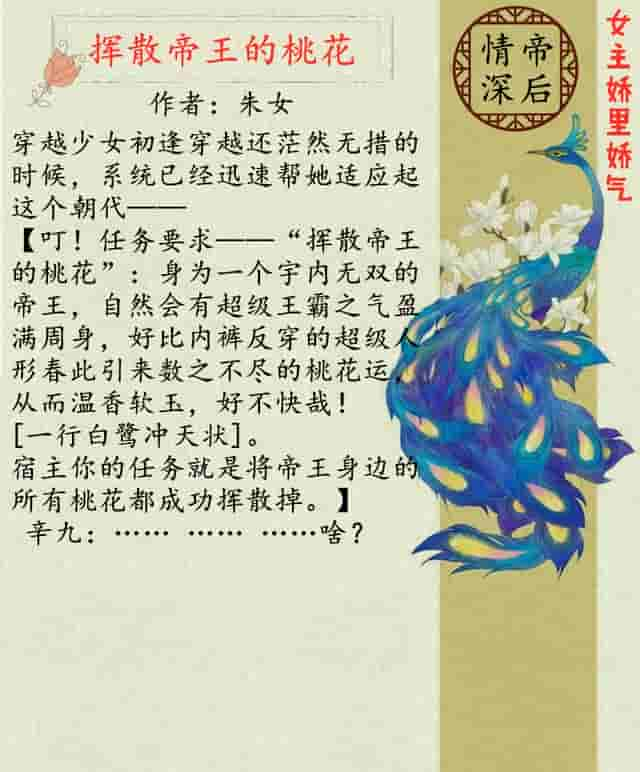 挥散帝王的桃花
作者：朱女
穿越少女初逢穿越还茫然无措的
时候，系统已经迅速帮她适应起
这个朝代——
【叮！任务要求——“挥散帝王
的桃花”：身为一个宇内无双的
帝王，自然会有超级王霸之气盈
满周身，好比内裤反穿的超级人
形春此引来数之不尽的桃花运，
从而温香软玉，好不快哉！
[一行白鹭冲天状]。
宿主你的任务就是将帝王身边的
所有桃花都成功挥散掉。】
辛九：…… …… ……啥？
帝后
情深
女主娇里娇气